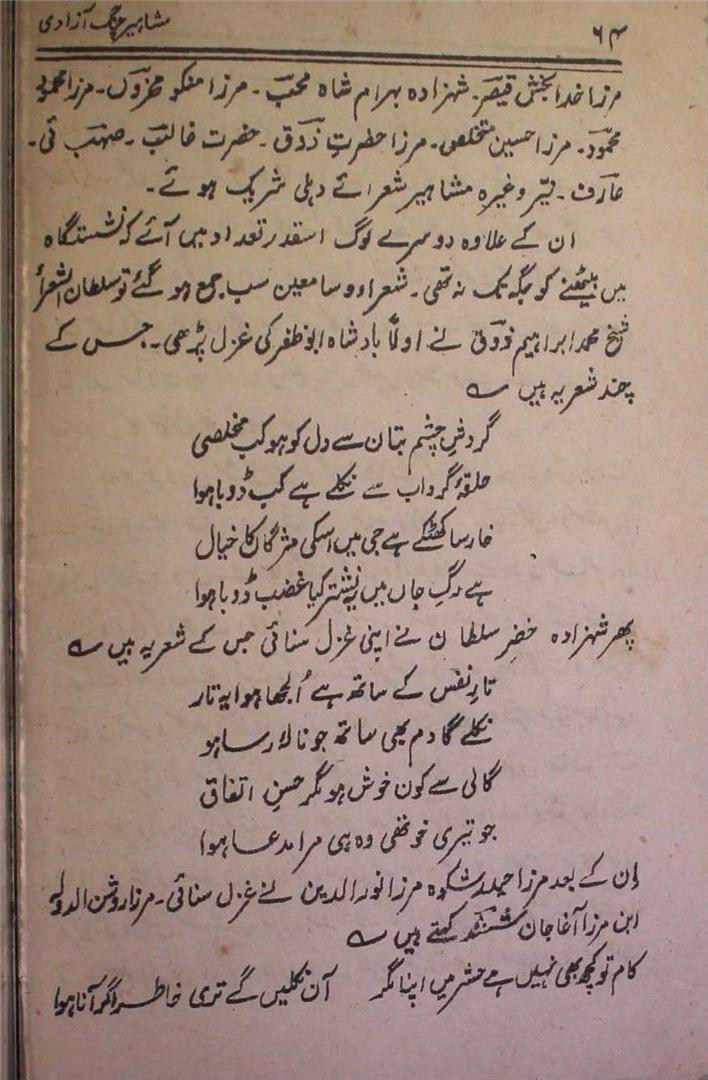 ۶۴ مشاہیر جنگ آزادی
مرزا خدا بخش قیصر۔ شہزادہ بہرام شاہ محب۔ مرزا منکو محزوں۔ مرزا
محمود۔ مرزا حسین متخلص۔ مرزا حضرتِ ذوق۔ حضرت غالب۔ صہبائی۔
عارف۔ نیر وغیرہ مشاہیر شعرائے دہلی شریک ہوئے۔
ان کے علاوہ دوسرے لوگ اسقدر تعداد میں آئے کہ نشستگاہ
میں بیٹھنے کو جگہ تک نہ تھی۔ شعراء و سامعین سب جمع ہو گئے تو سلطان الشعرأ
شیخ محمد ابراہیم ذوق نے اولاً بادشاہ ابو ظفر کی غزل پڑھی۔ جس کے
چند شعر یہ ہیں ؎
گردشِ چشم بتان سے دل کو ہو کب مخلصی
حلقۂ گرداب سے نکلے ہے کب ڈوبا ہوا
خار سا کھٹکے ہے جی میں اسکی مژگاں کا خیال
ہے رگِ جاں میں یہ نشتر کیا غضب ڈوبا ہوا
پھر شہزادہ خضر سلطان نے اپنی غزل سنائی جس کے شعر یہ ہیں ؎
تارِ نفس کے ساتھ ہے اُلجھا ہوا یہ تار
نکلے گا دم بھی ساتھ جو نالہ رسا ہو
گالی سے کون خوش ہو مگر حسنِ اتفاق
جو تیری خو تھی وہ ہی مرا مدعا ہوا
اِن کے بعد مرزا حیدر شکوہ مرزا نور الدین نے غزل سنائی۔ مرزا روشن الدولہ
ابن مرزا آغا جان کہتے ہیں ؎
کام تو کچھ بھی نہیں ہے حشر میں اپنا مگر آن نکلیں گے تری خاطر اگر آنا ہوا